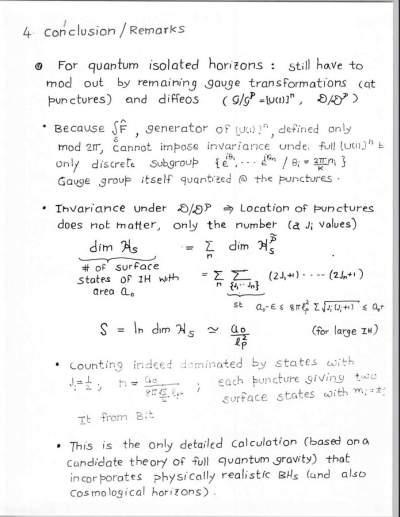 4 Conclusion/Remarks
For quantum isolated horizons : still have to
mod out by remaining gauge transformations (at
punctures) and diffeos (G/G^P = [U(1)]^n, D/D^P)
• Because ∮F̂, generator of [U(1)]^n, defined only
mod 2π, cannot impose invariance under full [U(1)]^n
only discrete subgroup
Gauge group itself quantized @ the punctures.
• Invariance under D/D^P ⇒ Location of punctures
does not matter, only the number (& j_i values)
dim H_S = Σ_n dim H_S^P̃
# of surface
states of IH with
area a₀
= Σ_n Σ_{j_1..j_n} (2j_1+1) ..... (2j_n+1)
st a₀-ε ≤ 8πl_p² Σ√j_i(j_i+1) ≤ a₀+
S = ln dim H_S ≃ a₀/l_p² (for large IH)
• Counting indeed dominated by states with
j_i = 1/2 ; each puncture giving two
surface states with
It from Bit
• This is the only detailed calculation (based on a
candidate theory of full quantum gravity) that
incorporates physically realistic BHs (and also
cosmological horizons).